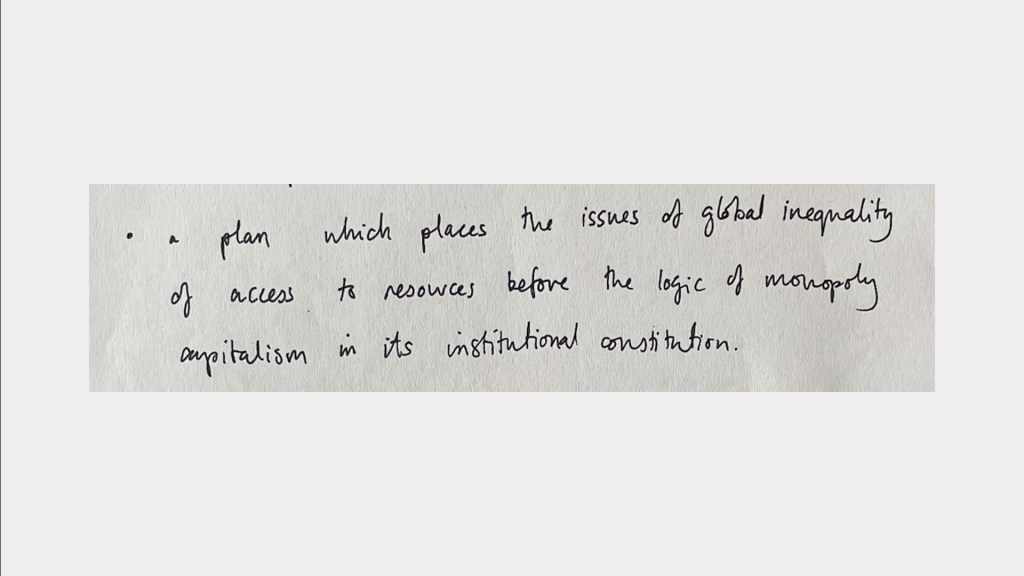 • a plan which places the issues of global inequality
of access to resources before the logic of monopoly
capitalism in its institutional constitution.